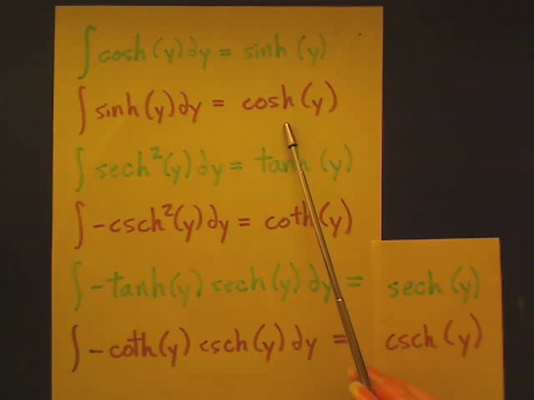 ∫ cosh(y) dy = sinh(y)
∫ sinh(y) dy = cosh(y)
∫ sech²(y) dy = tanh(y)
∫ -csch²(y) dy = coth(y)
∫ -tanh(y) sech(y) dy = sech(y)
∫ -coth(y) csch(y) dy = csch(y)